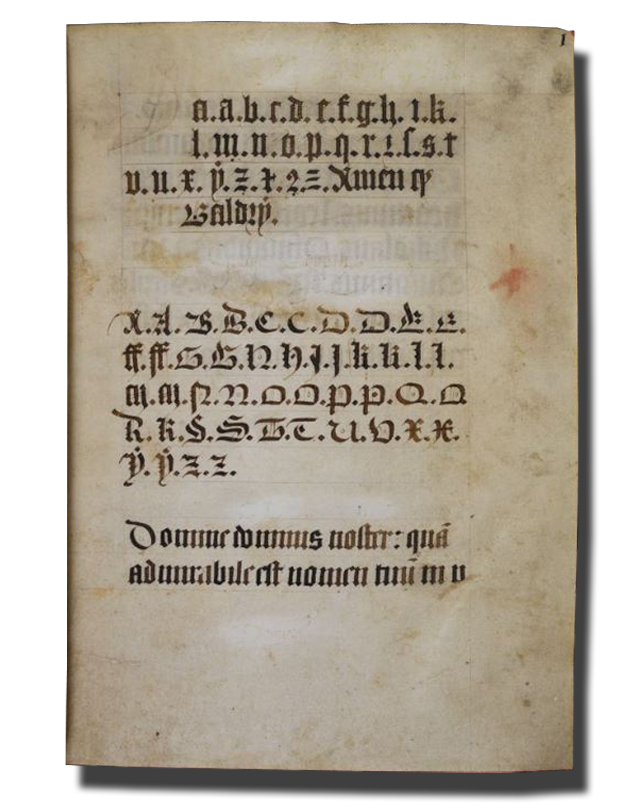 1
a.a.b.c.d.e.f.g.h.i.k.
l.m.n.o.p.q.r.ꝛ.ſ.s.t
v.u.x.ÿ.z.
A.A.B.B.C.C.D.D.E.E.
ff.ff.G.G.H.H.I.I.k.k.l.l.
M.M.N.N.O.O.P.P.Q.Q
R.R.S.S.T.T.U.V.X.X.
ÿ.ÿ.z.z.
Domine dominus noster: quã
admirabile est nomen tuũ in v